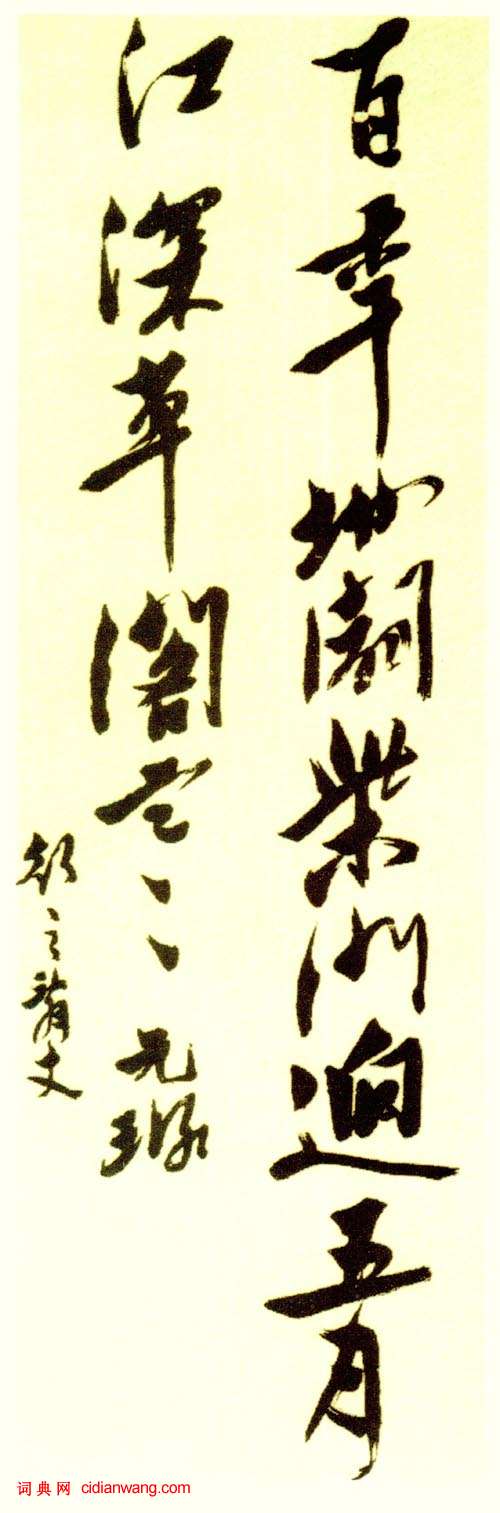 百年地闢柴門迥五月
江深草閣寒元璐
之丈
词典网 cidianwang.com